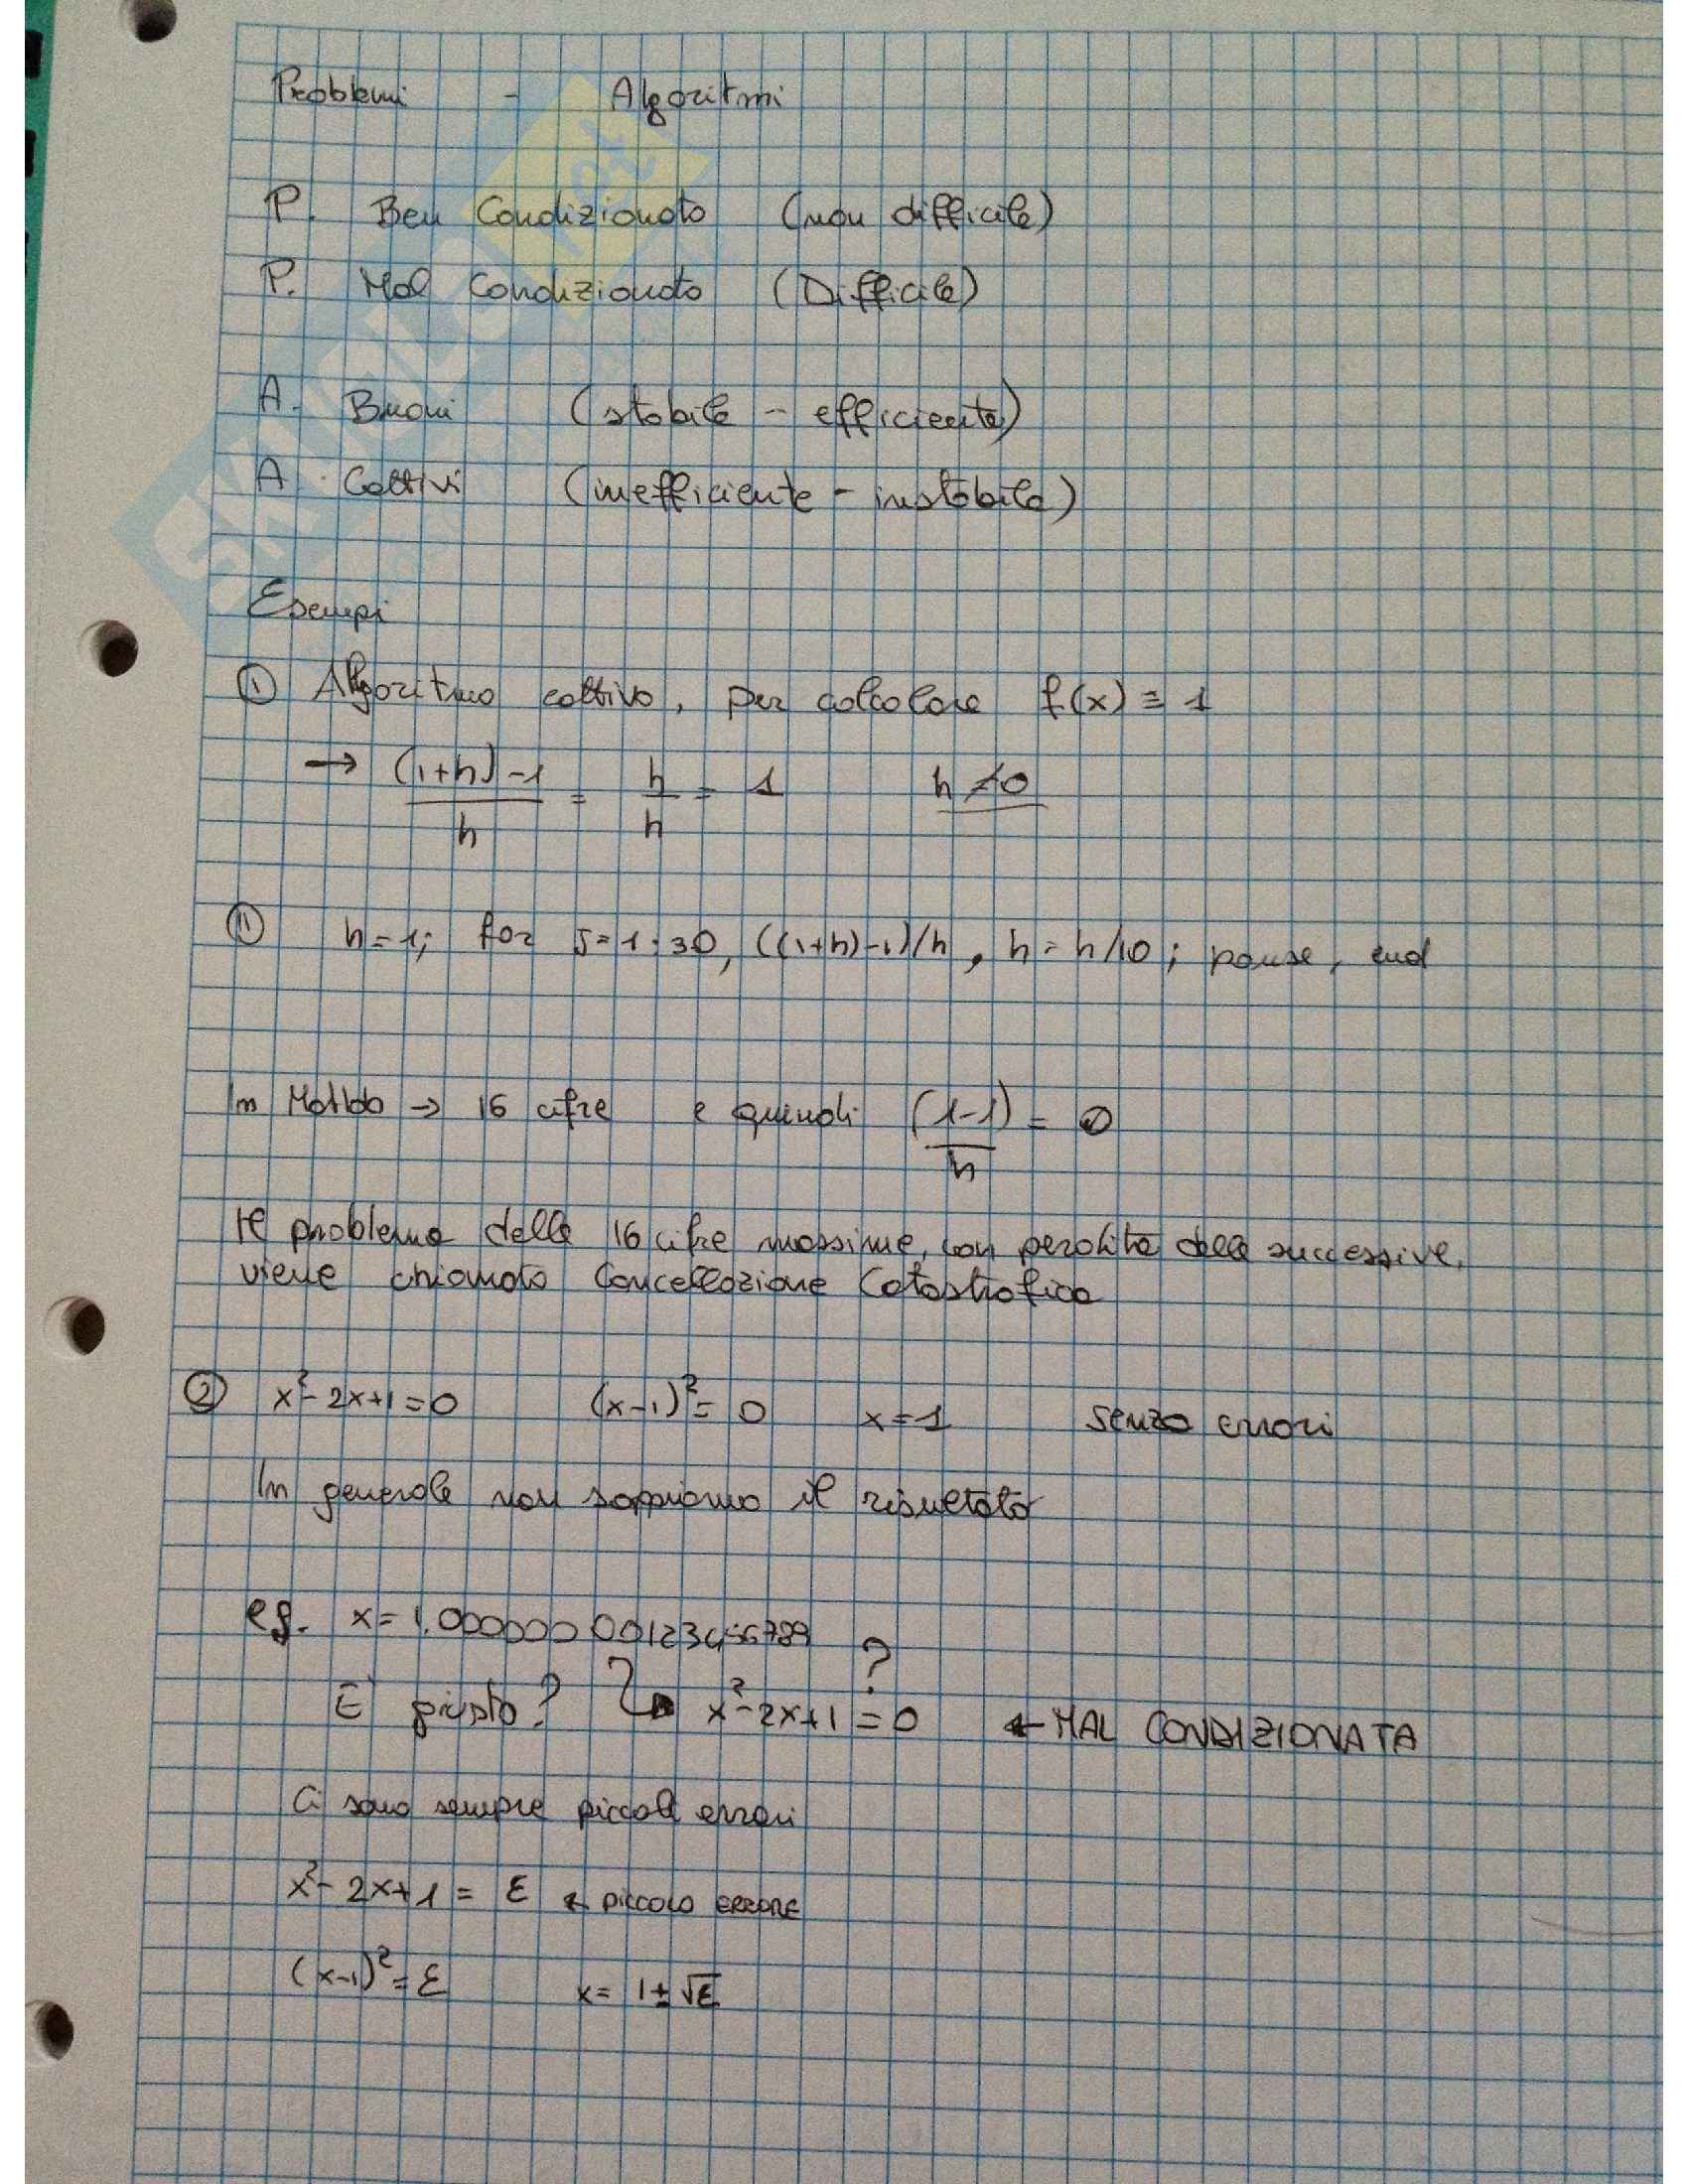 Problemi - Algoritmi
P. Ben Condizionato (non difficile)
P. Mal Condizionato (Difficile)
A. Buoni (stabile - efficiente)
A. Cattivi (inefficiente - instabile)
Esempi
① Algoritmo cattivo, per calcolare f(x) ≡ 1
→ ((1+h)-1)/h = h/h = 1 h≠0
① h=1; for J=1:30, ((1+h)-1)/h, h=h/10; pause, end
In Matlab → 16 cifre e quindi (1-1)/h = 0
Il problema delle 16 cifre massime, con perdita delle successive,
viene chiamato Cancellazione Catastrofica
② x²-2x+1=0 (x-1)²=0 x=1 senza errori
In generale non sappiamo il risultato
eg. x=1.00000000123456789
E' giusto? x²-2x+1=0 ? ← MAL CONDIZIONATA
Ci sono sempre piccoli errori
x²-2x+1 = ε ← PICCOLO ERRORE
(x-1)²=ε x= 1±√ε